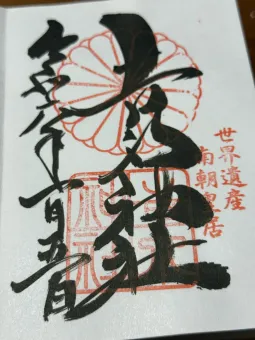 世界遺産
南朝皇居
吉水神社
令和 年 月五日